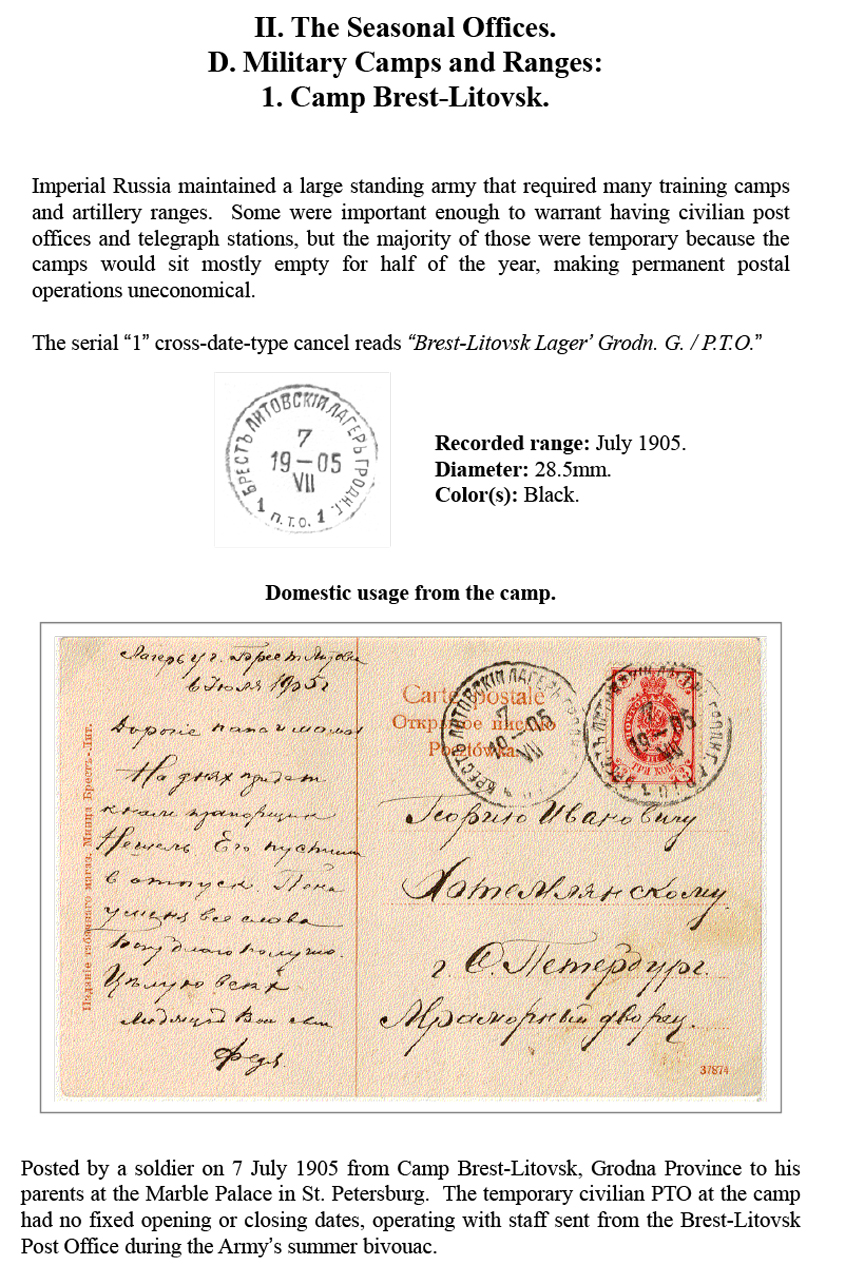 II. The Seasonal Offices.
D. Military Camps and Ranges:
1. Camp Brest-Litovsk.
Imperial Russia maintained a large standing army that required many training camps
and artillery ranges. Some were important enough to warrant having civilian post
offices and telegraph stations, but the majority of those were temporary because the
camps would sit mostly empty for half of the year, making permanent postal
operations uneconomical.
The serial “1” cross-date-type cancel reads “Brest-Litovsk Lager’ Grodn. G. / P.T.O.”
БРЕСТЪ ЛИТОВСКІЙ ЛАГЕРЬ ГРОДН.Г.
7
19-05
VII
1 П.Т.О. 1
Recorded range: July 1905.
Diameter: 28.5mm.
Color(s): Black.
Domestic usage from the camp.
Лагерь у г. Брест Литовск
6 Іюля 1905 г
Дорогіе папа и мама
На дняхъ
Нешель Его пустили
в отпуск. Пока
у меня все слава
Богу благополучно.
Цѣлую всѣхъ
Любящій Вас
Федя.
Изданіе табачнаго магаз. Минца Брестъ-Лит.
Carte postale
Открытое письмо
Pocztówka
БРЕСТЪ ЛИТОВСКІЙ ЛАГЕРЬ
7
19-05
VII
7
19-05
VII
ТРИ КОП.
Георгию Ивановичу
Хотемлянскому.
г. С. Петербург.
Мраморный дворец.
37874
Posted by a soldier on 7 July 1905 from Camp Brest-Litovsk, Grodna Province to his
parents at the Marble Palace in St. Petersburg. The temporary civilian PTO at the camp
had no fixed opening or closing dates, operating with staff sent from the Brest-Litovsk
Post Office during the Army’s summer bivouac.